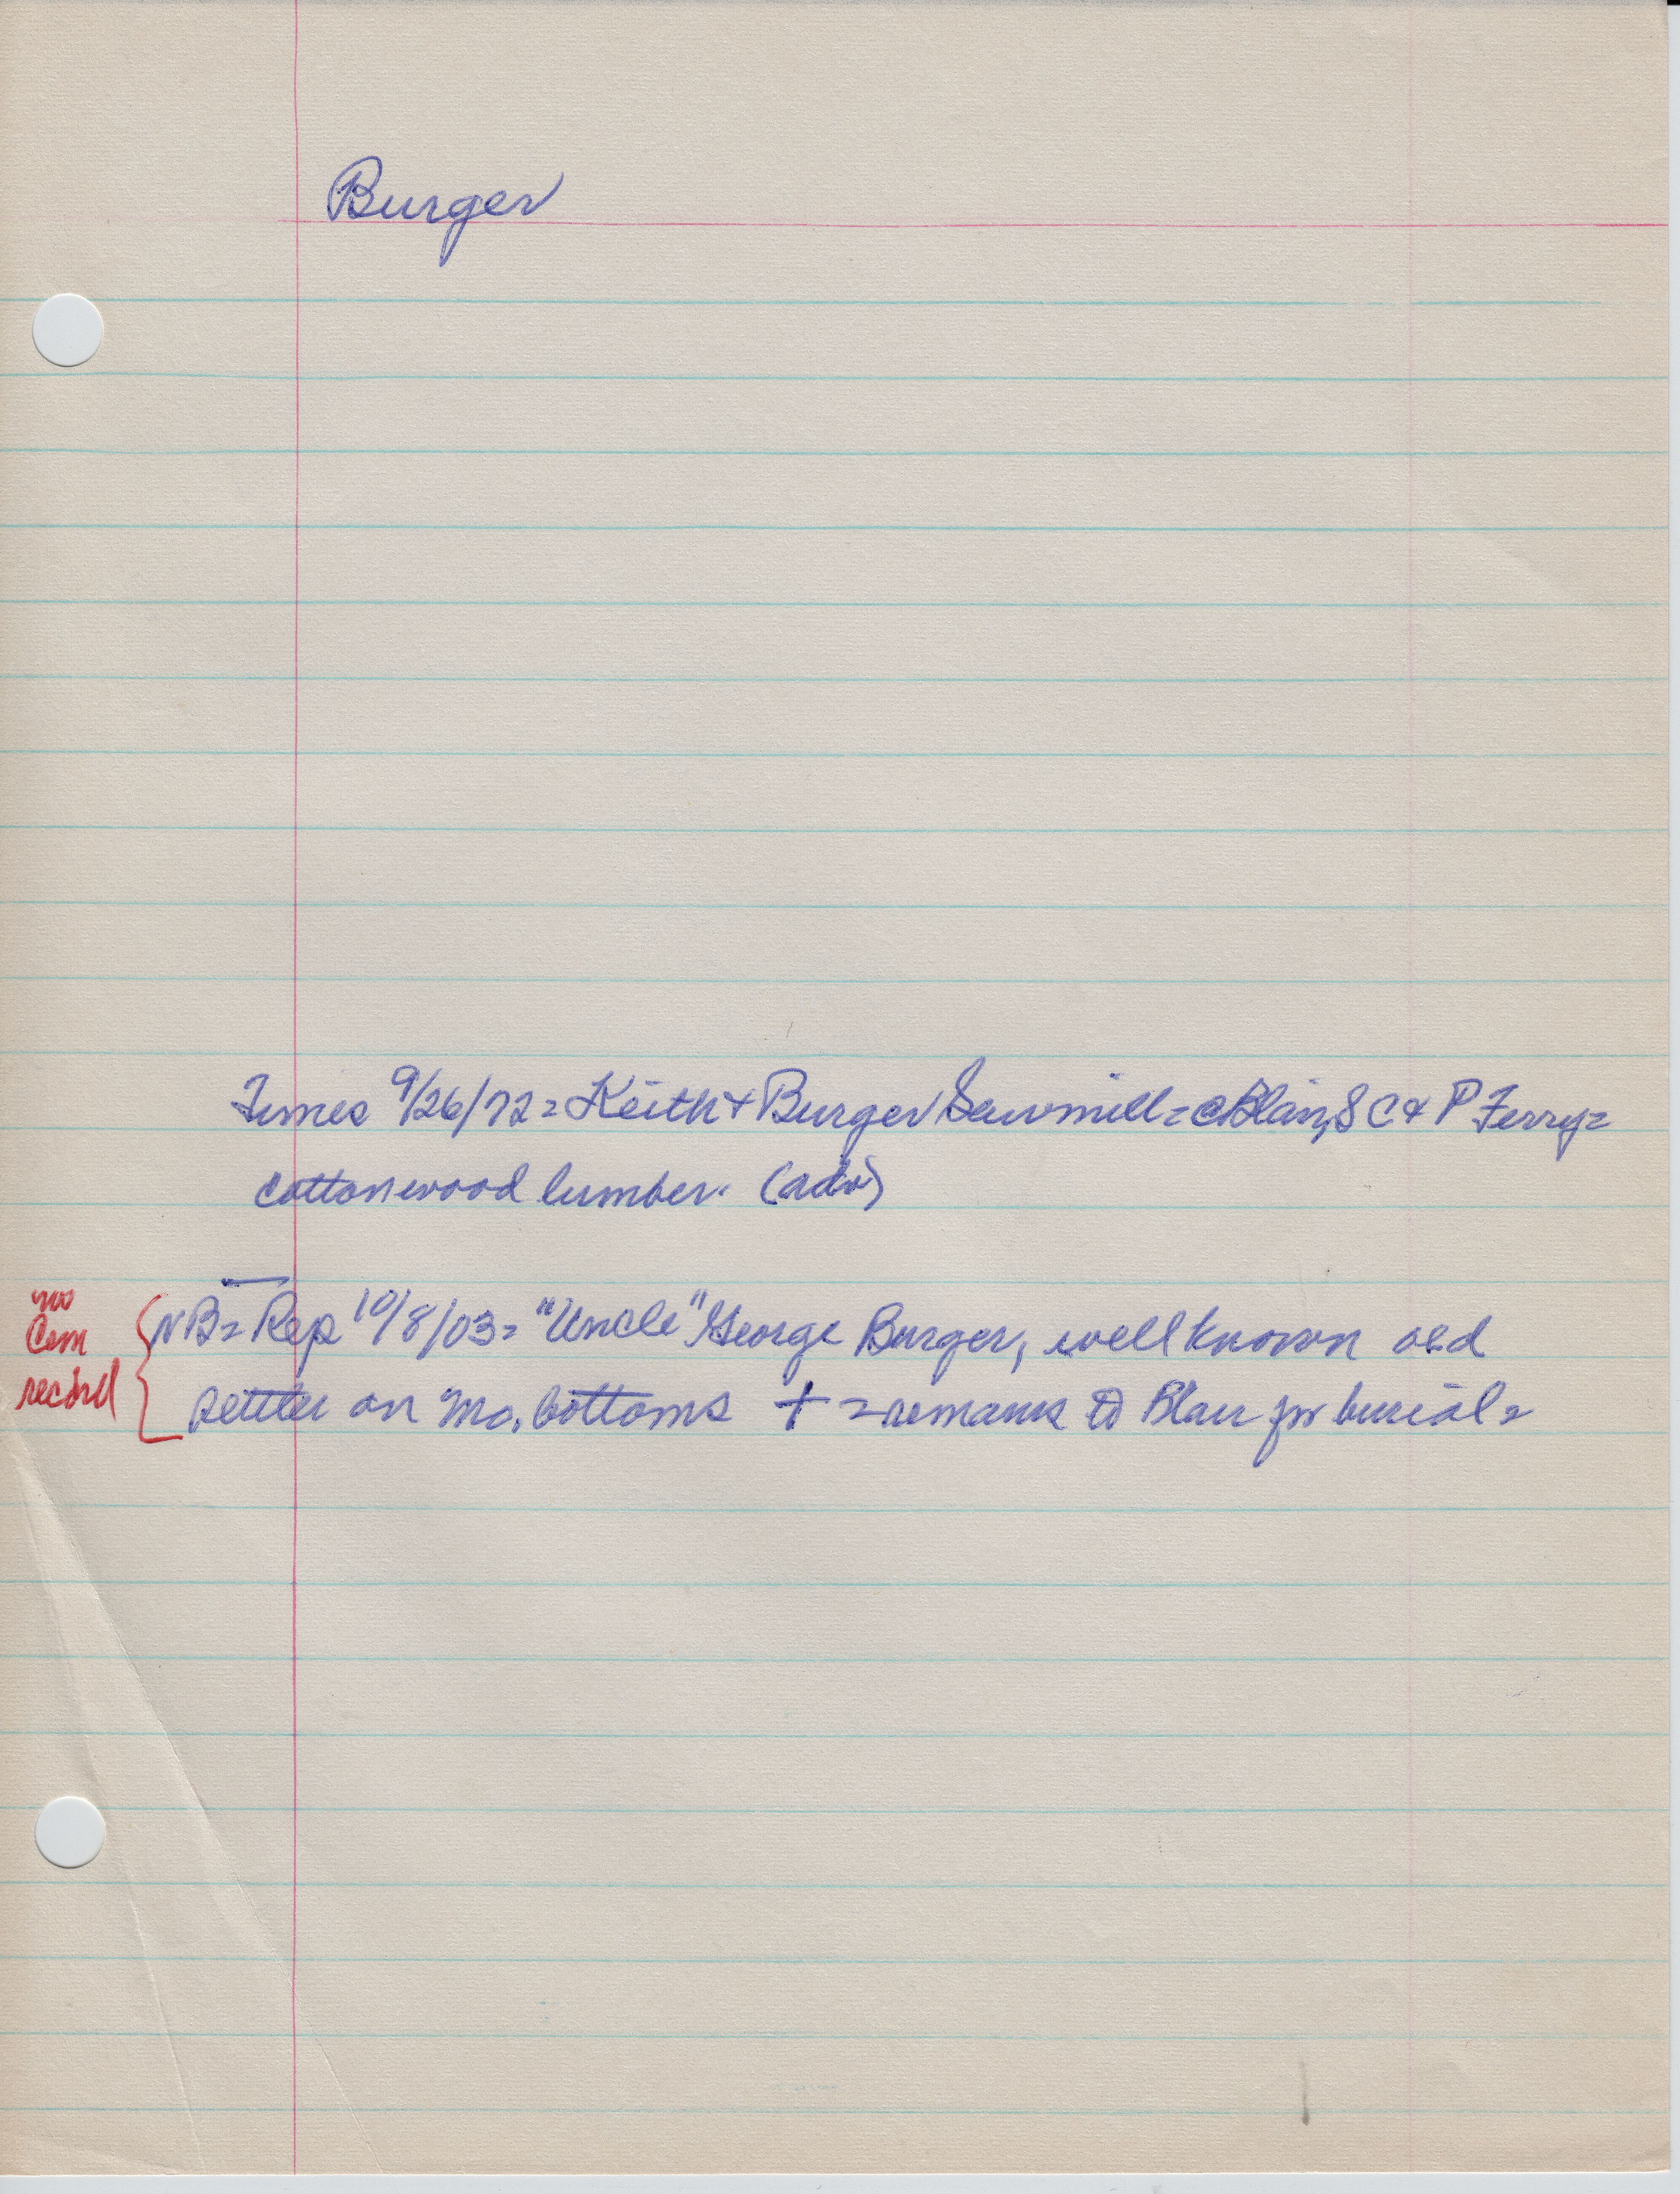 Burger
Times 9/26/72 = Keith + Burger Sawmill = Blair, S C & P Ferry =
cottonwood lumber. (adv)
no
Cem
record
NB = Rep 10/8/03 = "Uncle" George Burger, well known old
settler on Mo. bottoms + = remains to Blair for burial =